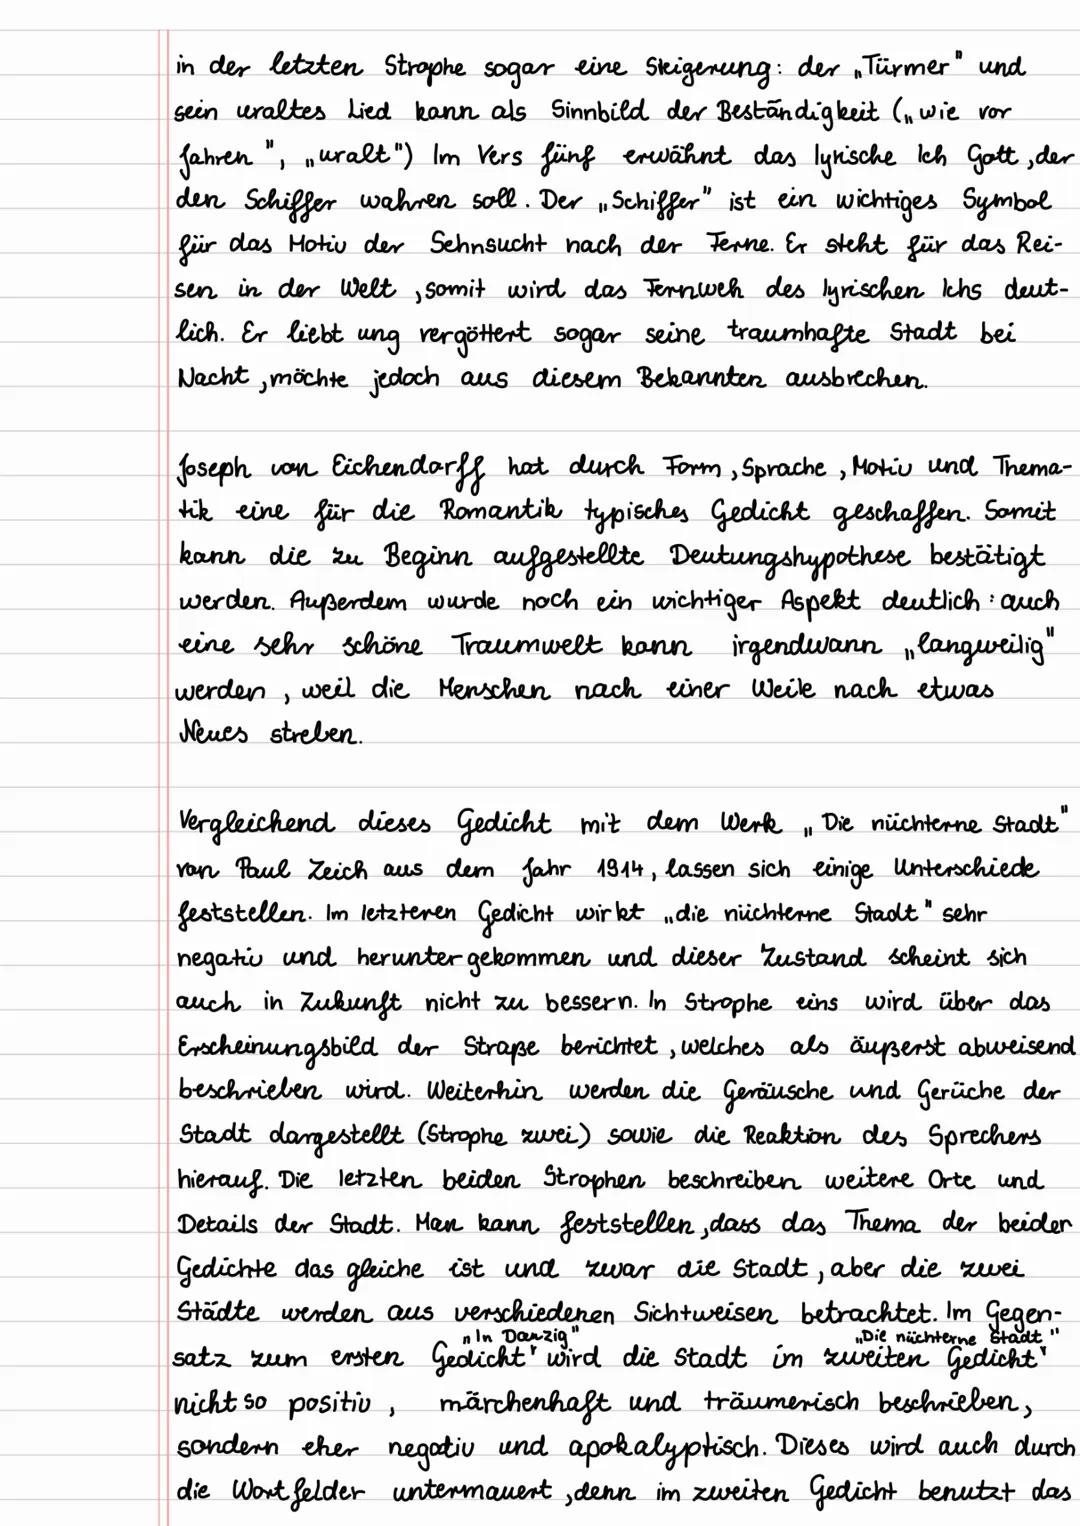 in der letzten Strophe sogar eine Steigerung: der „Türmer" und
sein uraltes Lied kann als Sinnbild der Beständigkeit („wie vor
Jahren", „uralt") Im Vers fünf erwähnt das lyrische Ich Gott, der
den Schiffer wahren soll. Der „Schiffer" ist ein wichtiges Symbol
für das Motiv der Sehnsucht nach der Ferne. Er steht für das Rei-
sen in der Welt, somit wird das Fernweh des lyrischen Ichs deut-
lich. Er liebt ung vergöttert sogar seine traumhafte Stadt bei
Nacht, möchte jedoch aus diesem Bekannten ausbrechen.
Joseph von Eichendorff hat durch Form, Sprache, Motiv und Thema-
tik eine für die Romantik typisches Gedicht geschaffen. Somit
kann die zu Beginn aufgestellte Deutungshypothese bestätigt
werden. Außerdem wurde noch ein wichtiger Aspekt deutlich: auch
eine sehr schöne Traumwelt kann irgendwann „langweilig"
werden, weil die Menschen nach einer Weile nach etwas
Neues streben.
Vergleichend dieses Gedicht mit dem Werk „Die nüchterne Stadt"
von Paul Zeich aus dem Jahr 1914, lassen sich einige Unterschiede
feststellen. Im letzteren Gedicht wirkt „die nüchterne Stadt" sehr
negativ und heruntergekommen und dieser Zustand scheint sich
auch in Zukunft nicht zu bessern. In Strophe eins wird über das
Erscheinungsbild der Straße berichtet, welches als äußerst abweisend
beschrieben wird. Weiterhin werden die Geräusche und Gerüche der
Stadt dargestellt (Strophe zwei) sowie die Reaktion des Sprechers
hierauf. Die letzten beiden Strophen beschreiben weitere Orte und
Details der Stadt. Man kann feststellen, dass das Thema der beider
Gedichte das gleiche ist und zwar die Stadt, aber die zwei
Städte werden aus verschiedenen Sichtweisen betrachtet. Im Gegen-
„In Danzig" „Die nüchterne Stadt"
satz zum ersten Gedicht wird die Stadt im zweiten Gedicht
nicht so positiv, märchenhaft und träumerisch beschrieben,
sondern eher negativ und apokalyptisch. Dieses wird auch durch
die Wortfelder untermauert, denn im zweiten Gedicht benutzt das